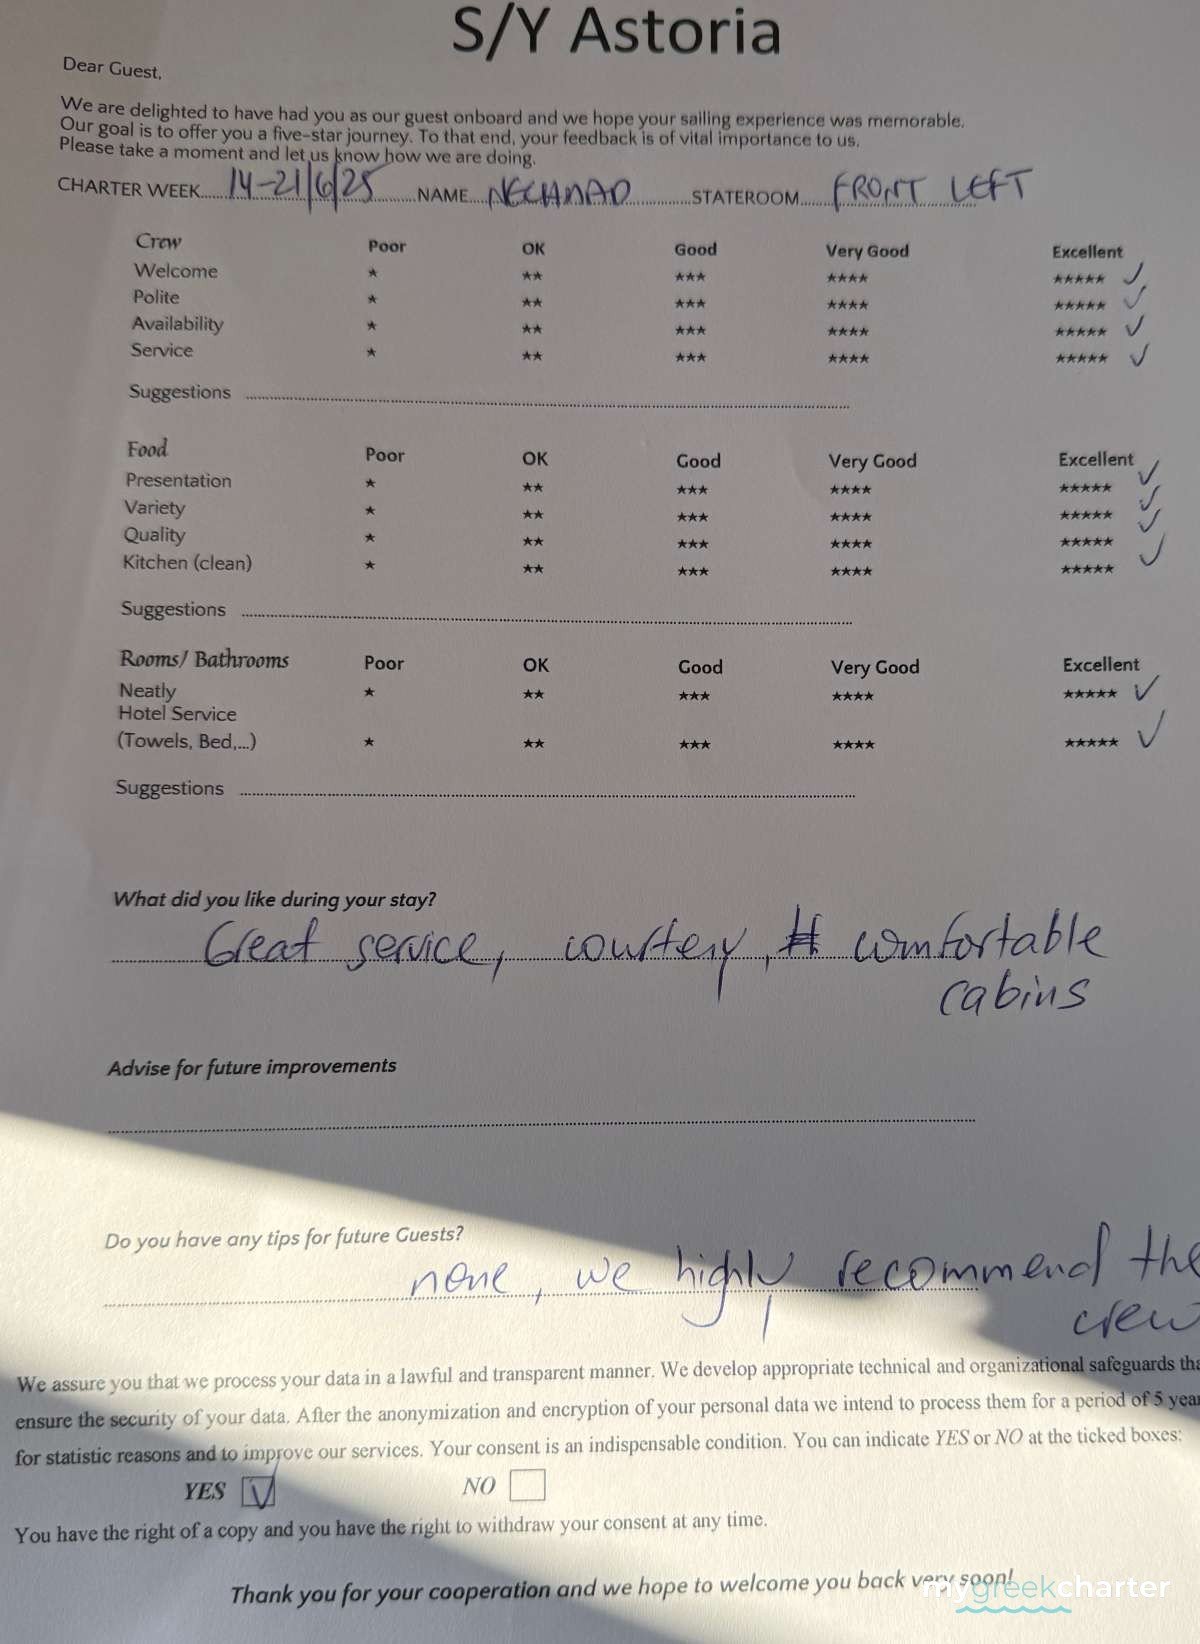 S/Y Astoria
Dear Guest,
We are delighted to have had you as our guest onboard and we hope your sailing experience was memorable.
Our goal is to offer you a five-star journey. To that end, your feedback is of vital importance to us.
Please take a moment and let us know how we are doing.
CHARTER WEEK......14-21/6/25.......NAME....NECHMAD..............STATEROOM.......FRONT LEFT
Crew Poor OK Good Very Good Excellent
Welcome ★ ★★ ★★★ ★★★★ ★★★★★ ✓
Polite ★ ★★ ★★★ ★★★★ ★★★★★ ✓
Availability ★ ★★ ★★★ ★★★★ ★★★★★ ✓
Service ★ ★★ ★★★ ★★★★ ★★★★★ ✓
Suggestions
Food Poor OK Good Very Good Excellent
Presentation ★ ★★ ★★★ ★★★★ ★★★★★ ✓
Variety ★ ★★ ★★★ ★★★★ ★★★★★ ✓
Quality ★ ★★ ★★★ ★★★★ ★★★★★ ✓
Kitchen (clean) ★ ★★ ★★★ ★★★★ ★★★★★ ✓
Suggestions
Rooms/ Bathrooms Poor OK Good Very Good Excellent
Neatly ★ ★★ ★★★ ★★★★ ★★★★★ ✓
Hotel Service
(Towels, Bed,...) ★ ★★ ★★★ ★★★★ ★★★★★ ✓
Suggestions
What did you like during your stay?
Great service, courtesy, comfortable
cabins
Advise for future improvements
Do you have any tips for future Guests?
none, we highly recommend the
crew
We assure you that we process your data in a lawful and transparent manner. We develop appropriate technical and organizational safeguards tha
ensure the security of your data. After the anonymization and encryption of your personal data we intend to process them for a period of 5 year
for statistic reasons and to improve our services. Your consent is an indispensable condition. You can indicate YES or NO at the ticked boxes:
YES ✓ NO
You have the right of a copy and you have the right to withdraw your consent at any time.
Thank you for your cooperation and we hope to welcome you back very soon!
mygreekcharter